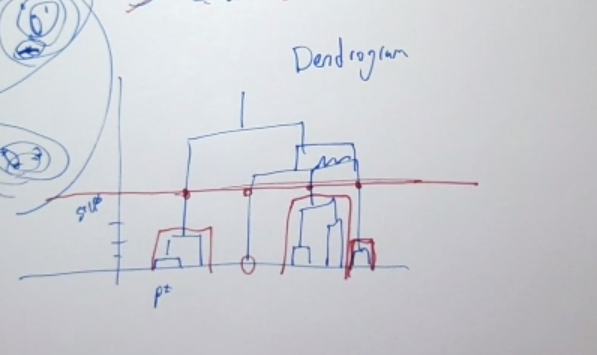 Dendrogram
pt